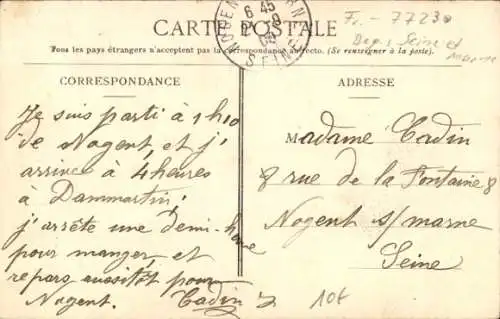 CARTE POSTALE
Tous les pays étrangers n'acceptent pas la correspondance au recto. (Se renseigner à la poste).
6 45
SEINE
Fr. - 77230
Dep. Seine et
Marne
CORRESPONDANCE
Je suis parti à 1h10
de Nogent, et j'
arrive à 4 heures
à Dammartin;
j'arrête une demi-heure
pour manger, et
repars aussitôt pour
Nogent. Cadin
ADRESSE
Madame Cadin
8 rue de la Fontaine 8
Nogent s/marne
Seine
10f